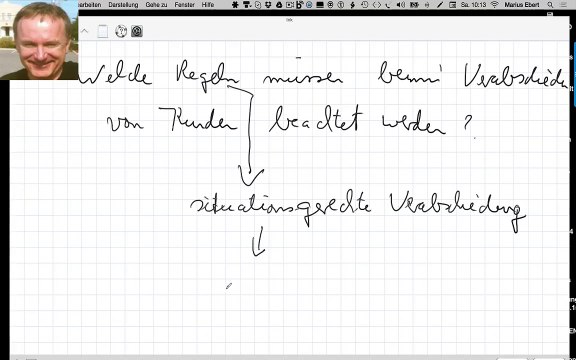 earbeiten Darstellung Gehe zu Fenster Hilfe Sa. 10:13 Marius Ebert
Welche Regeln müssen beim Verabschieden
von Kunden beachtet werden?
situationsgerechte Verabschiedung